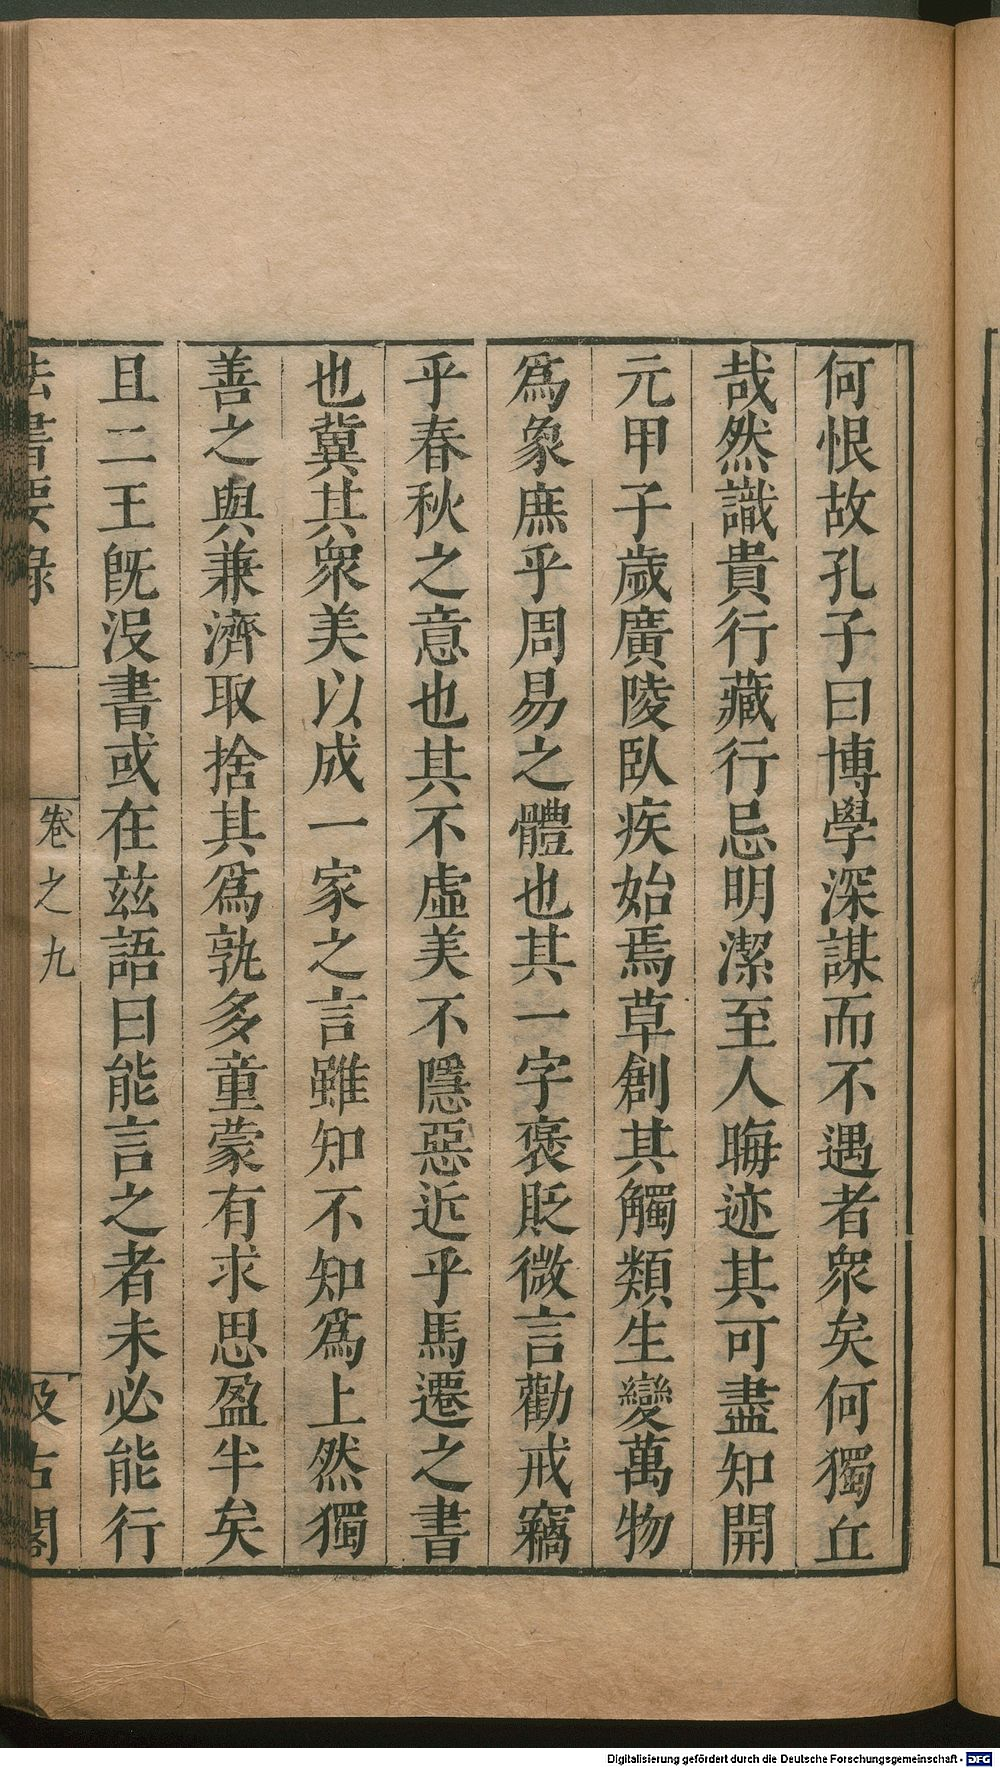 何恨故孔子曰博學深謀而不遇者衆矣何獨丘
哉然識貴行藏行忌明潔至人晦迹其可盡知開
元甲子歲廣陵臥疾始焉草創其觸類生變萬物
爲象庶乎周易之體也其一字褒貶微言勸戒竊
乎春秋之意也其不虛美不隱惡近乎馬遷之書
也冀其衆美以成一家之言雖知不知爲上然獨
善之與兼濟取捨其爲孰多童蒙有求思盈半矣
且二王旣沒書或在茲語曰能言之者未必能行
法書要錄
卷之九
汲古閣
Digitalisierung gefördert durch die Deutsche Forschungsgemeinschaft - DFG